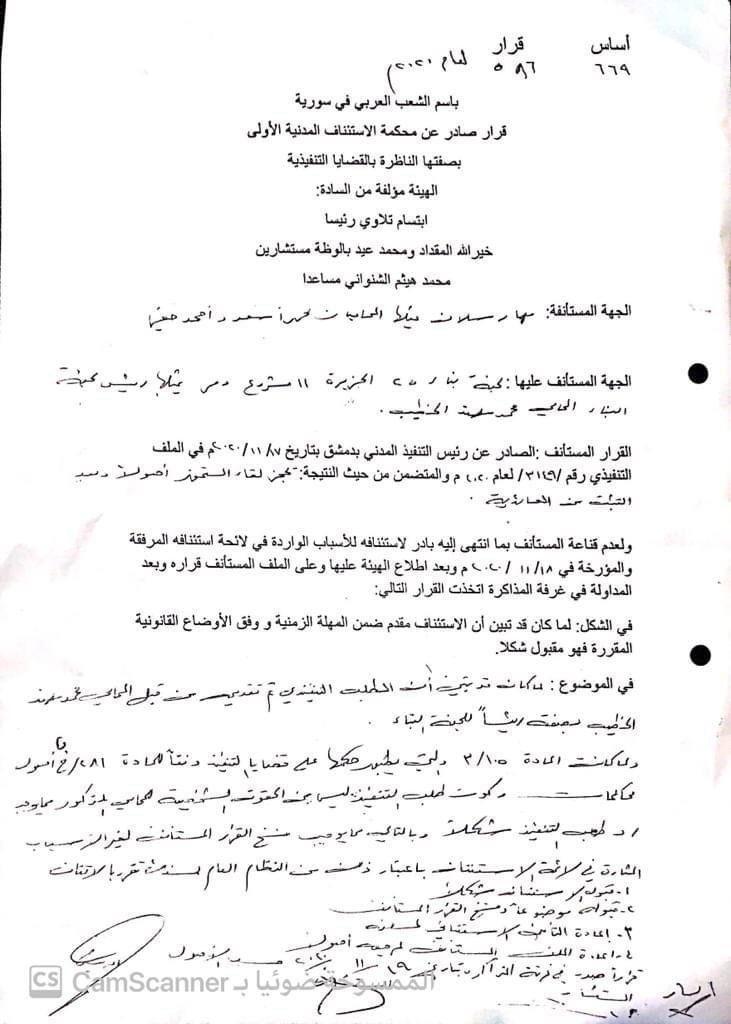 أساس قرار
٦٦٩ ٥٩٦ لعام ٢٠٢٠م
باسم الشعب العربي في سورية
قرار صادر عن محكمة الاستئناف المدنية الأولى
بصفتها الناظرة بالقضايا التنفيذية
الهيئة مؤلفة من السادة:
ابتسام تلاوي رئيسا
خيرالله المقداد ومحمد عيد بالوظة مستشارين
محمد هيثم الشنواني مساعدا
الجهة المستأنفة: يمثلها المحاميان
الجهة المستأنف عليها: لجنة بناء ٢٥ الجزيرة ١١ مشروع دمر يمثلها رئيس لجنة
البناء المحامي محمد الخطيب.
القرار المستأنف :الصادر عن رئيس التنفيذ المدني بدمشق بتاريخ ٨/ ١١/ ٢٠٢٠م في الملف
التنفيذي رقم /٣١٤٩/ لعام ٢٠٢٠ م والمتضمن من حيث النتيجة: أصولا وبعد
التثبت من العائدية.
ولعدم قناعة المستأنف بما انتهى إليه بادر لاستئنافه للأسباب الواردة في لائحة استئنافه المرفقة
والمؤرخة في ١٨/ ١١ / ٢٠٢٠ م وبعد اطلاع الهيئة عليها وعلى الملف المستأنف قراره وبعد
المداولة في غرفة المذاكرة اتخذت القرار التالي:
في الشكل: لما كان قد تبين أن الاستئناف مقدم ضمن المهلة الزمنية و وفق الأوضاع القانونية
المقررة فهو مقبول شكلا.
في الموضوع : لما كان قد تبين أن الطلب التنفيذي تم تقديمه من قبل المحامي محمد
الخطيب بصفته رئيساً للجنة البناء.
ولما كانت المادة ٣/١٠٥ والتي يطبق حكمها على قضايا التنفيذ وفقاً للمادة ٢٨١ أصول
محاكمات وكون طلب التنفيذ ليس من الحقوق الشخصية للمحامي المذكور مما يوجب
رد طلب التنفيذ شكلاً وبالتالي مما يوجب فسخ القرار المستأنف لغير الأسباب
المثارة في لائحة الاستئناف باعتبار ذلك من النظام العام لذلك تقرر بالاتفاق
١- قبول الاستئناف شكلاً
٢- قبوله موضوعاً وفسخ القرار المستأنف
٣- إعادة التأمين الاستئنافي لمسلفه
٤- إعادة الملف المستأنف لمرجعه أصولاً
قراراً صدر في غرفة المذاكرة بتاريخ ١٩/ ١١/ ٢٠٢٠ حسب الأصول
الرئيس
المستشار
المستشار
CS CamScanner الممسوحة ضوئيا بـ